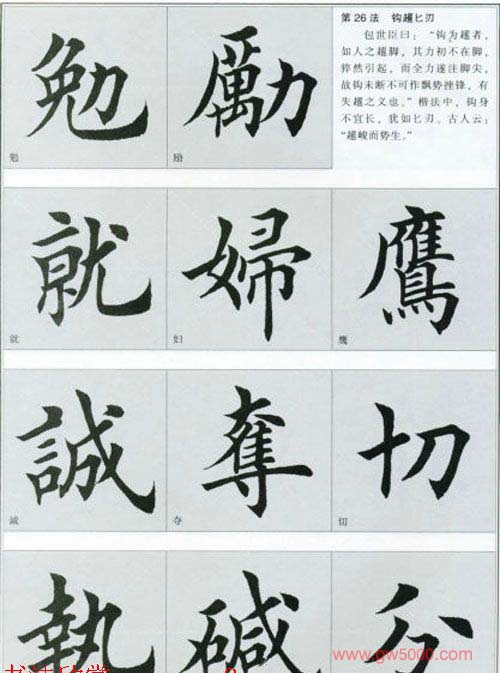 第26法 钩趯匕刃
包世臣曰：“钩为趯者，
如人之趯脚，其力初不在脚，
猝然引起，而全力遂注脚尖，
故钩末断不可作飘势挫锋，有
失趯之义也。”楷法中，钩身
不宜长，犹如匕刃。古人云：
“趯峻而势生。”
勉 勵
勉 励
就 婦 鷹
就 妇 鹰
誠 奪 切
诚 夺 切
執 碱 分
www.gw5000.com